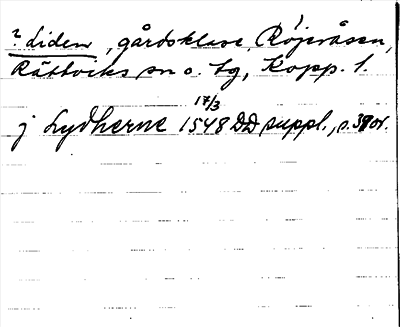 ? Liden, gårdsklase, Röjeråsen,
Rättviks sn o. tg, Kopp. l.
17/3
j Lydherne 1548 DD suppl., s.